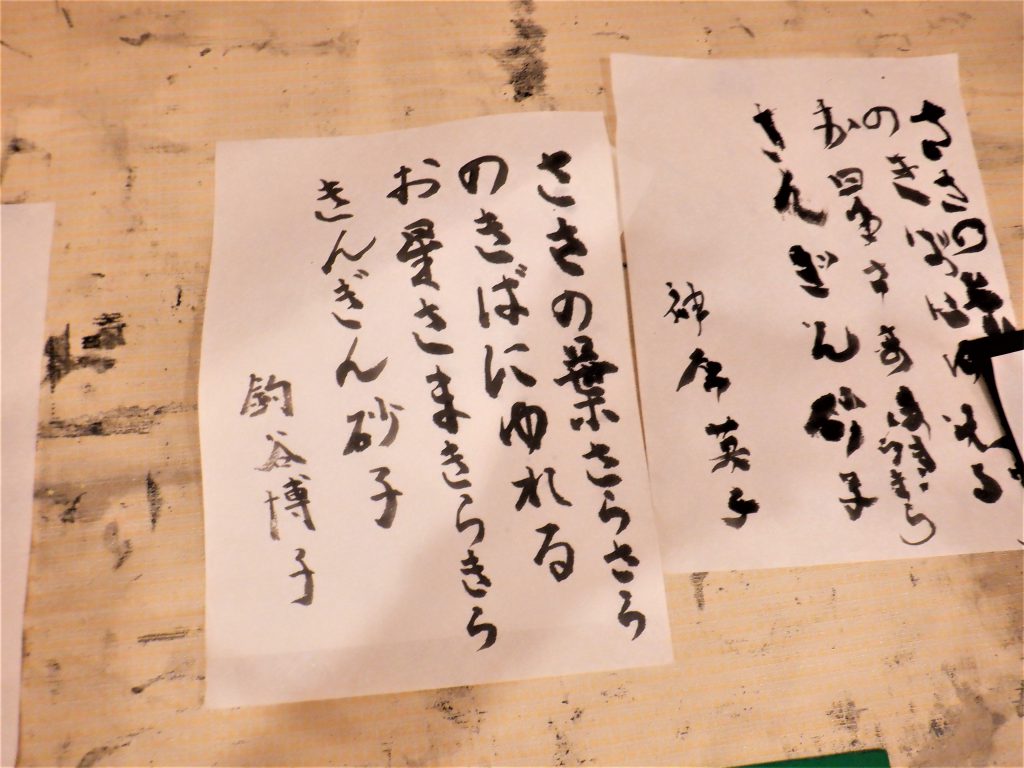 ささの
のきばにゆれる
お星さまきらきら
きんぎん砂子
神金英子
ささの葉さらさら
のきばにゆれる
お星さまきらきら
きんぎん砂子
釣谷博子